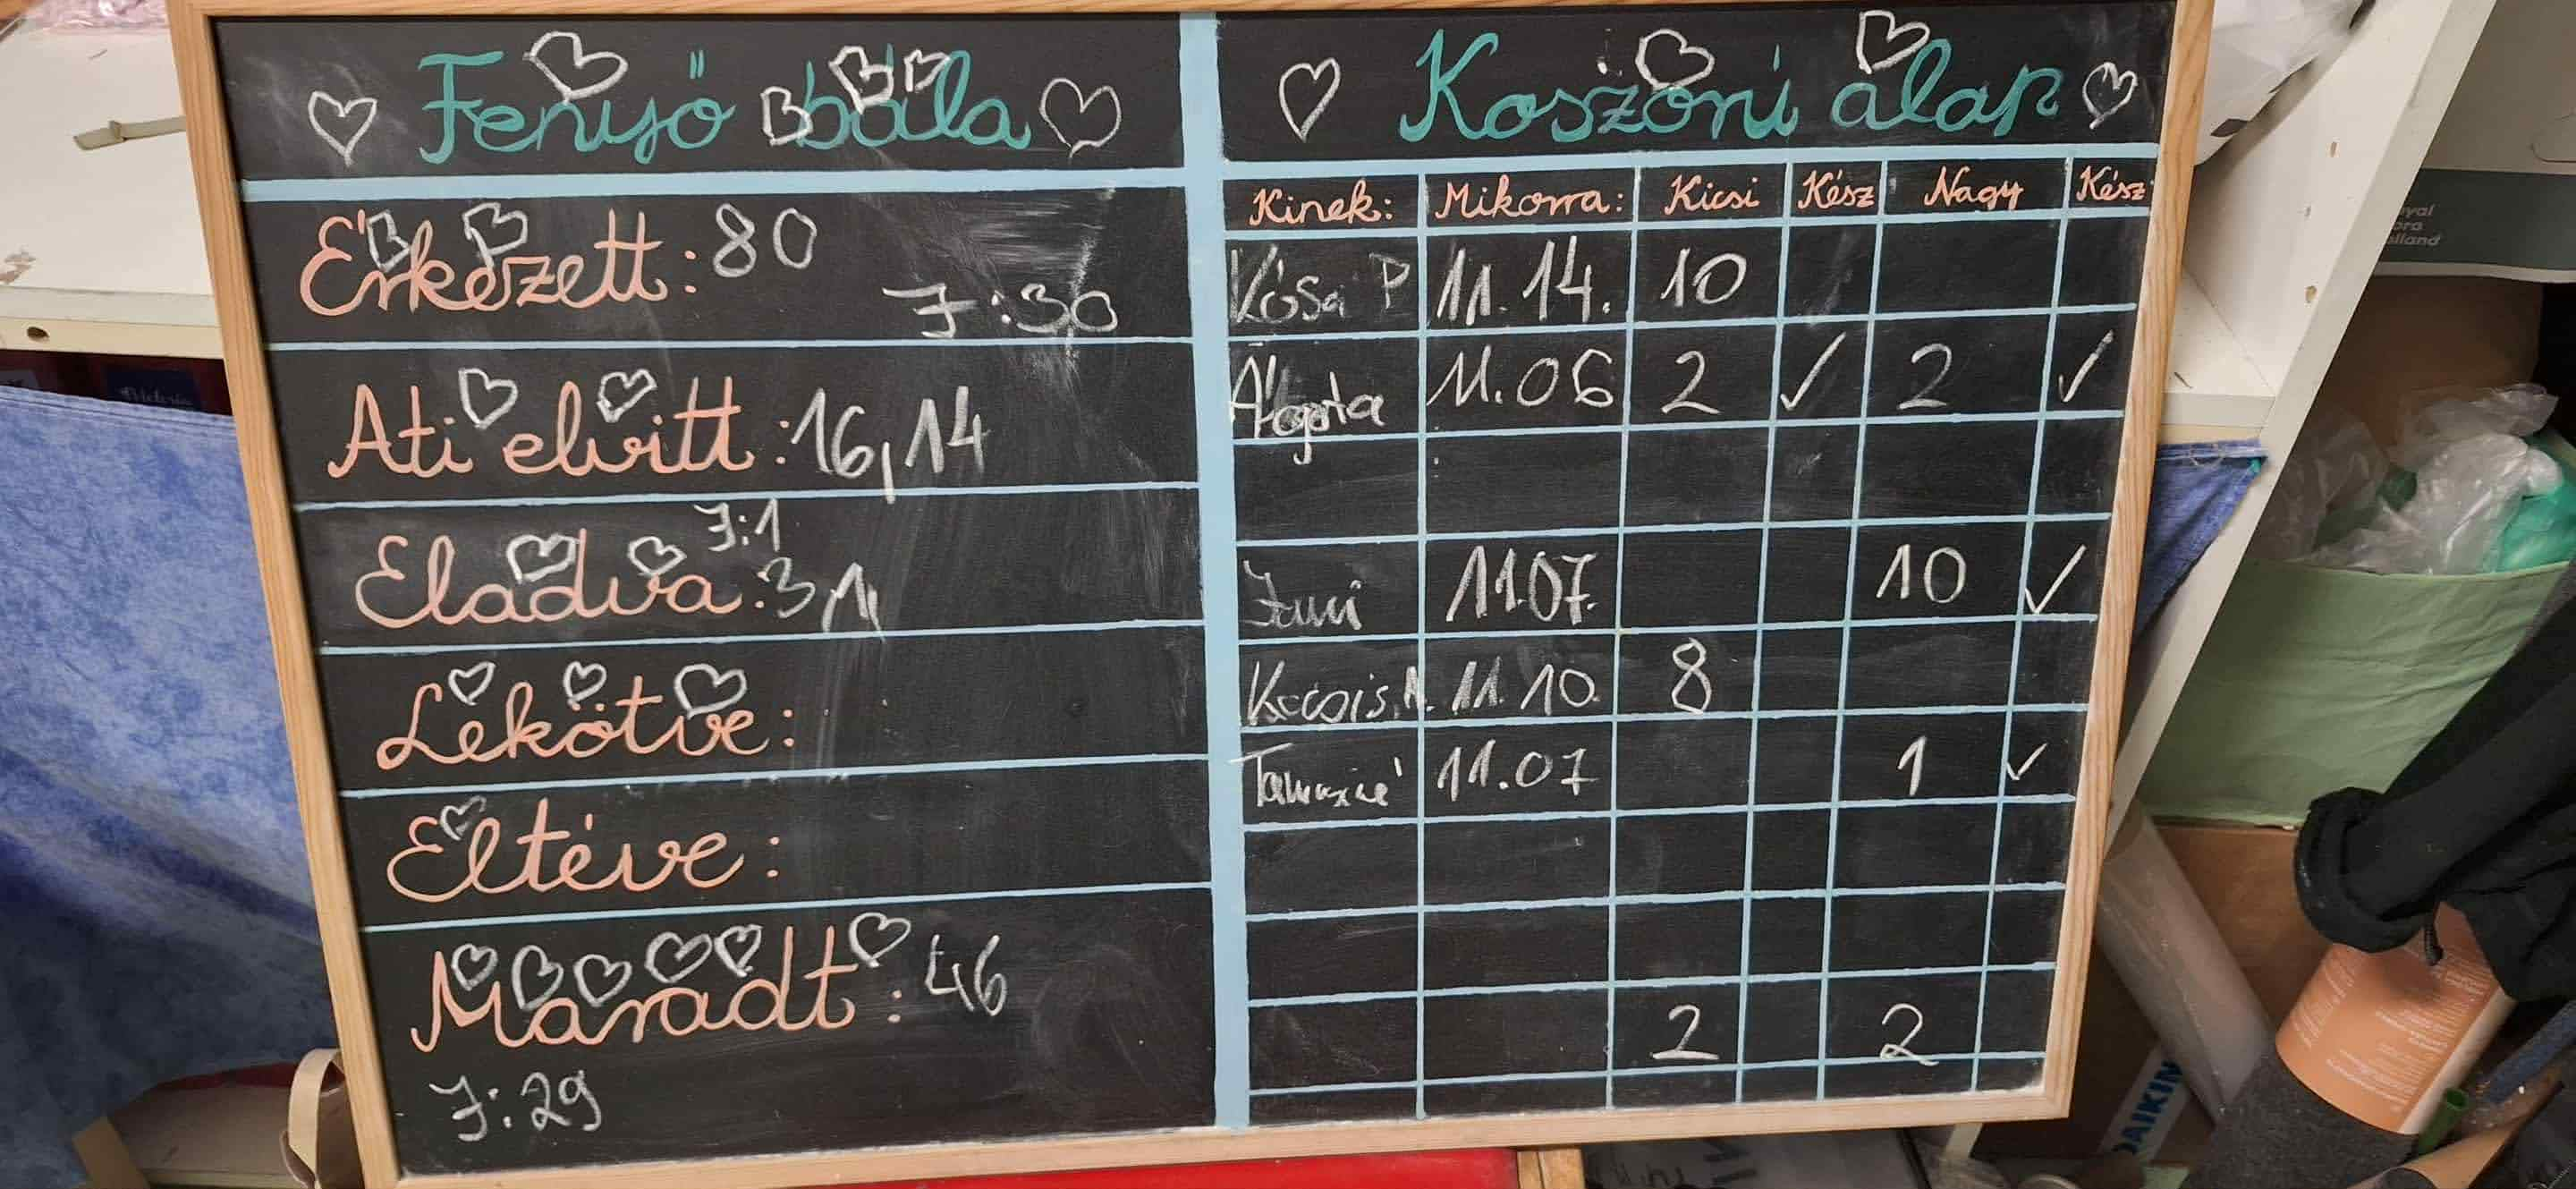 Fenyő bála
Érkezett: 80
J:30
Ati elvitt: 16, 14
J:1
Eladva: 3 1,
Lekötve:
Eltéve:
Maradt: 46
J:29
Koszorú alap
Kinek: Mikorra: Kicsi Kész Nagy Kész
Kósa P 11.14. 10
Ágota 11.06 2 ✓ 2 ✓
11.07. 10 ✓
Kocsis. 11.10. 8
11.07 1 ✓
2 2
DAIKIN